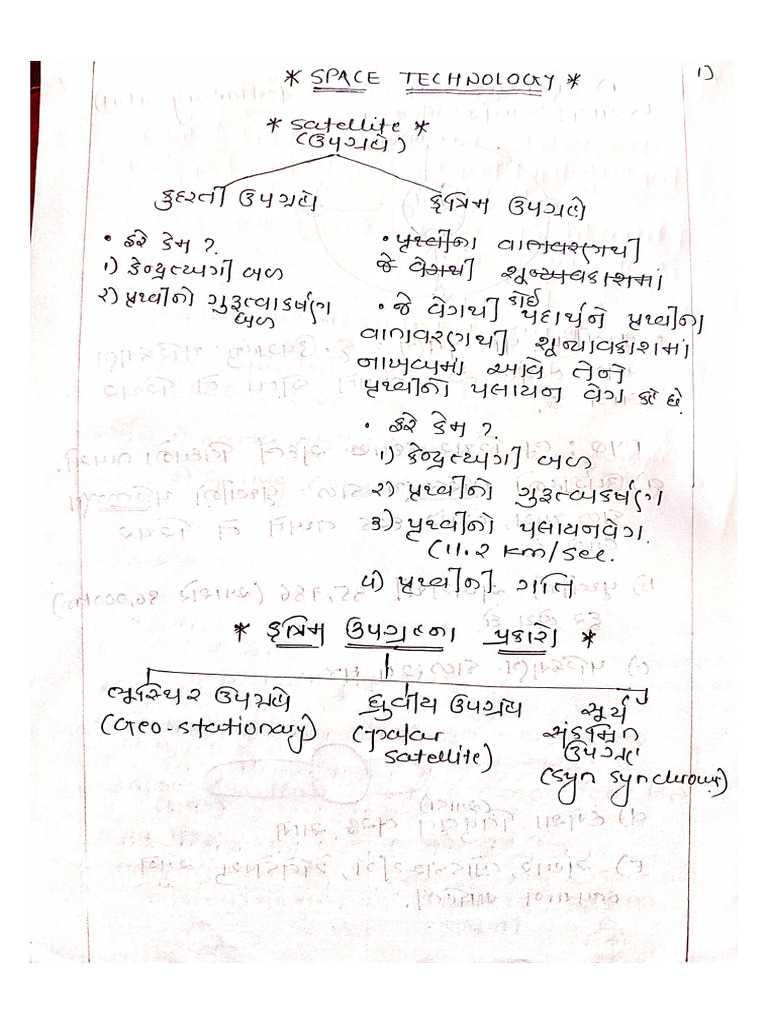 * SPACE TECHNOLOGY *
1)
* Satellite *
(ઉપગ્રહ)
કુદરતી ઉપગ્રહ
કૃત્રિમ ઉપગ્રહ
• ફરે કેમ ?
૧) કેન્દ્રત્યાગી બળ
૨) પૃથ્વીનો ગુરુત્વાકર્ષણ
બળ
• પૃથ્વીના વાતાવરણથી
જે વેગથી શૂન્યઅવકાશમાં
• જે વેગથી કોઈ પદાર્થને પૃથ્વીના
વાતાવરણથી શૂન્યાવકાશમાં
નાખવામાં આવે તેને
પૃથ્વીનો પલાયન વેગ કહે છે.
• ફરે કેમ ?
૧) કેન્દ્રત્યાગી બળ
૨) પૃથ્વીનો ગુરુત્વાકર્ષણ
૩) પૃથ્વીનો પલાયનવેગ
(11.2 km/sec.
૫) પૃથ્વીની ગતિ
* કૃત્રિમ ઉપગ્રહના પ્રકારો *
ભૂસ્થિર ઉપગ્રહ
(Geo-stationary)
ધ્રુવીય ઉપગ્રહ
(polar
satellite)
સૂર્ય
ઉપગ્રહ
(syn synchronus)